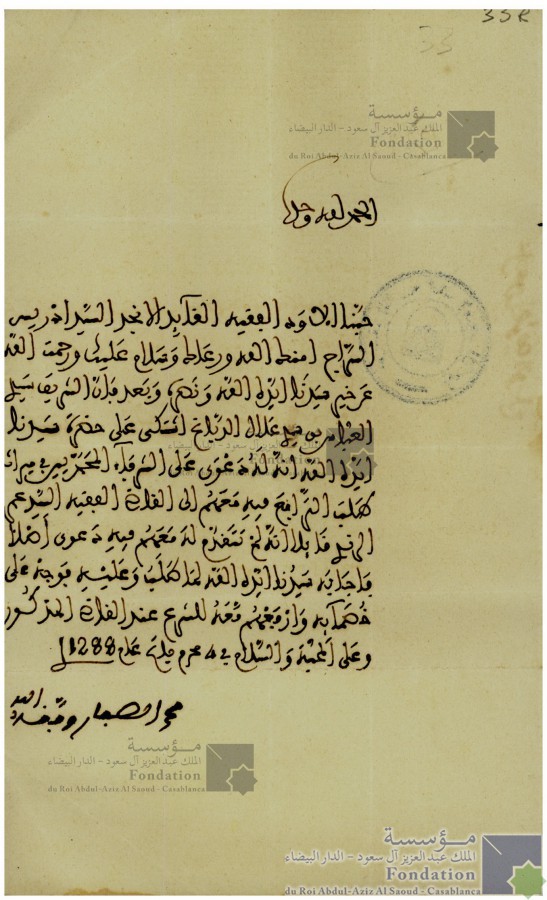 33R
33
مؤسسة
الملك عبد العزيز آل سعود - الدار البيضاء
Fondation
du Roi Abdul-Aziz Al Saoud - Casablanca
الحمد لله وحده
الفقيه القايد الانجد السيد ادريس
السراج امنك الله ورعاك وسلام عليك ورحمت الله
عن خير سيدنا ايده الله ونصره وبعد فإن الشريف سيدي
العباس بن علال اشتكى على حضرة سيدنا
ايده الله انه له دعوى على الشرفاء في ميراث
طلب الترافع فيه معهم الى القاضي الفقيه السيد
قايلا انه لم تتقدم له معهم فيه دعوى اصلا
فاجابه سيدنا ايده الله لما طلب وعليه فوجه على
وارفعهم معه للشرع عند القاضي المذكور
وعلى المحبة والسلام في 4 محرم فاتح عام 1288
محمد الصفار وفقه الله
مؤسسة
الملك عبد العزيز آل سعود - الدار البيضاء
Fondation
du Roi Abdul-Aziz Al Saoud - Casablanca
مؤسسة
الملك عبد العزيز آل سعود - الدار البيضاء
Fondation
du Roi Abdul-Aziz Al Saoud - Casablanca